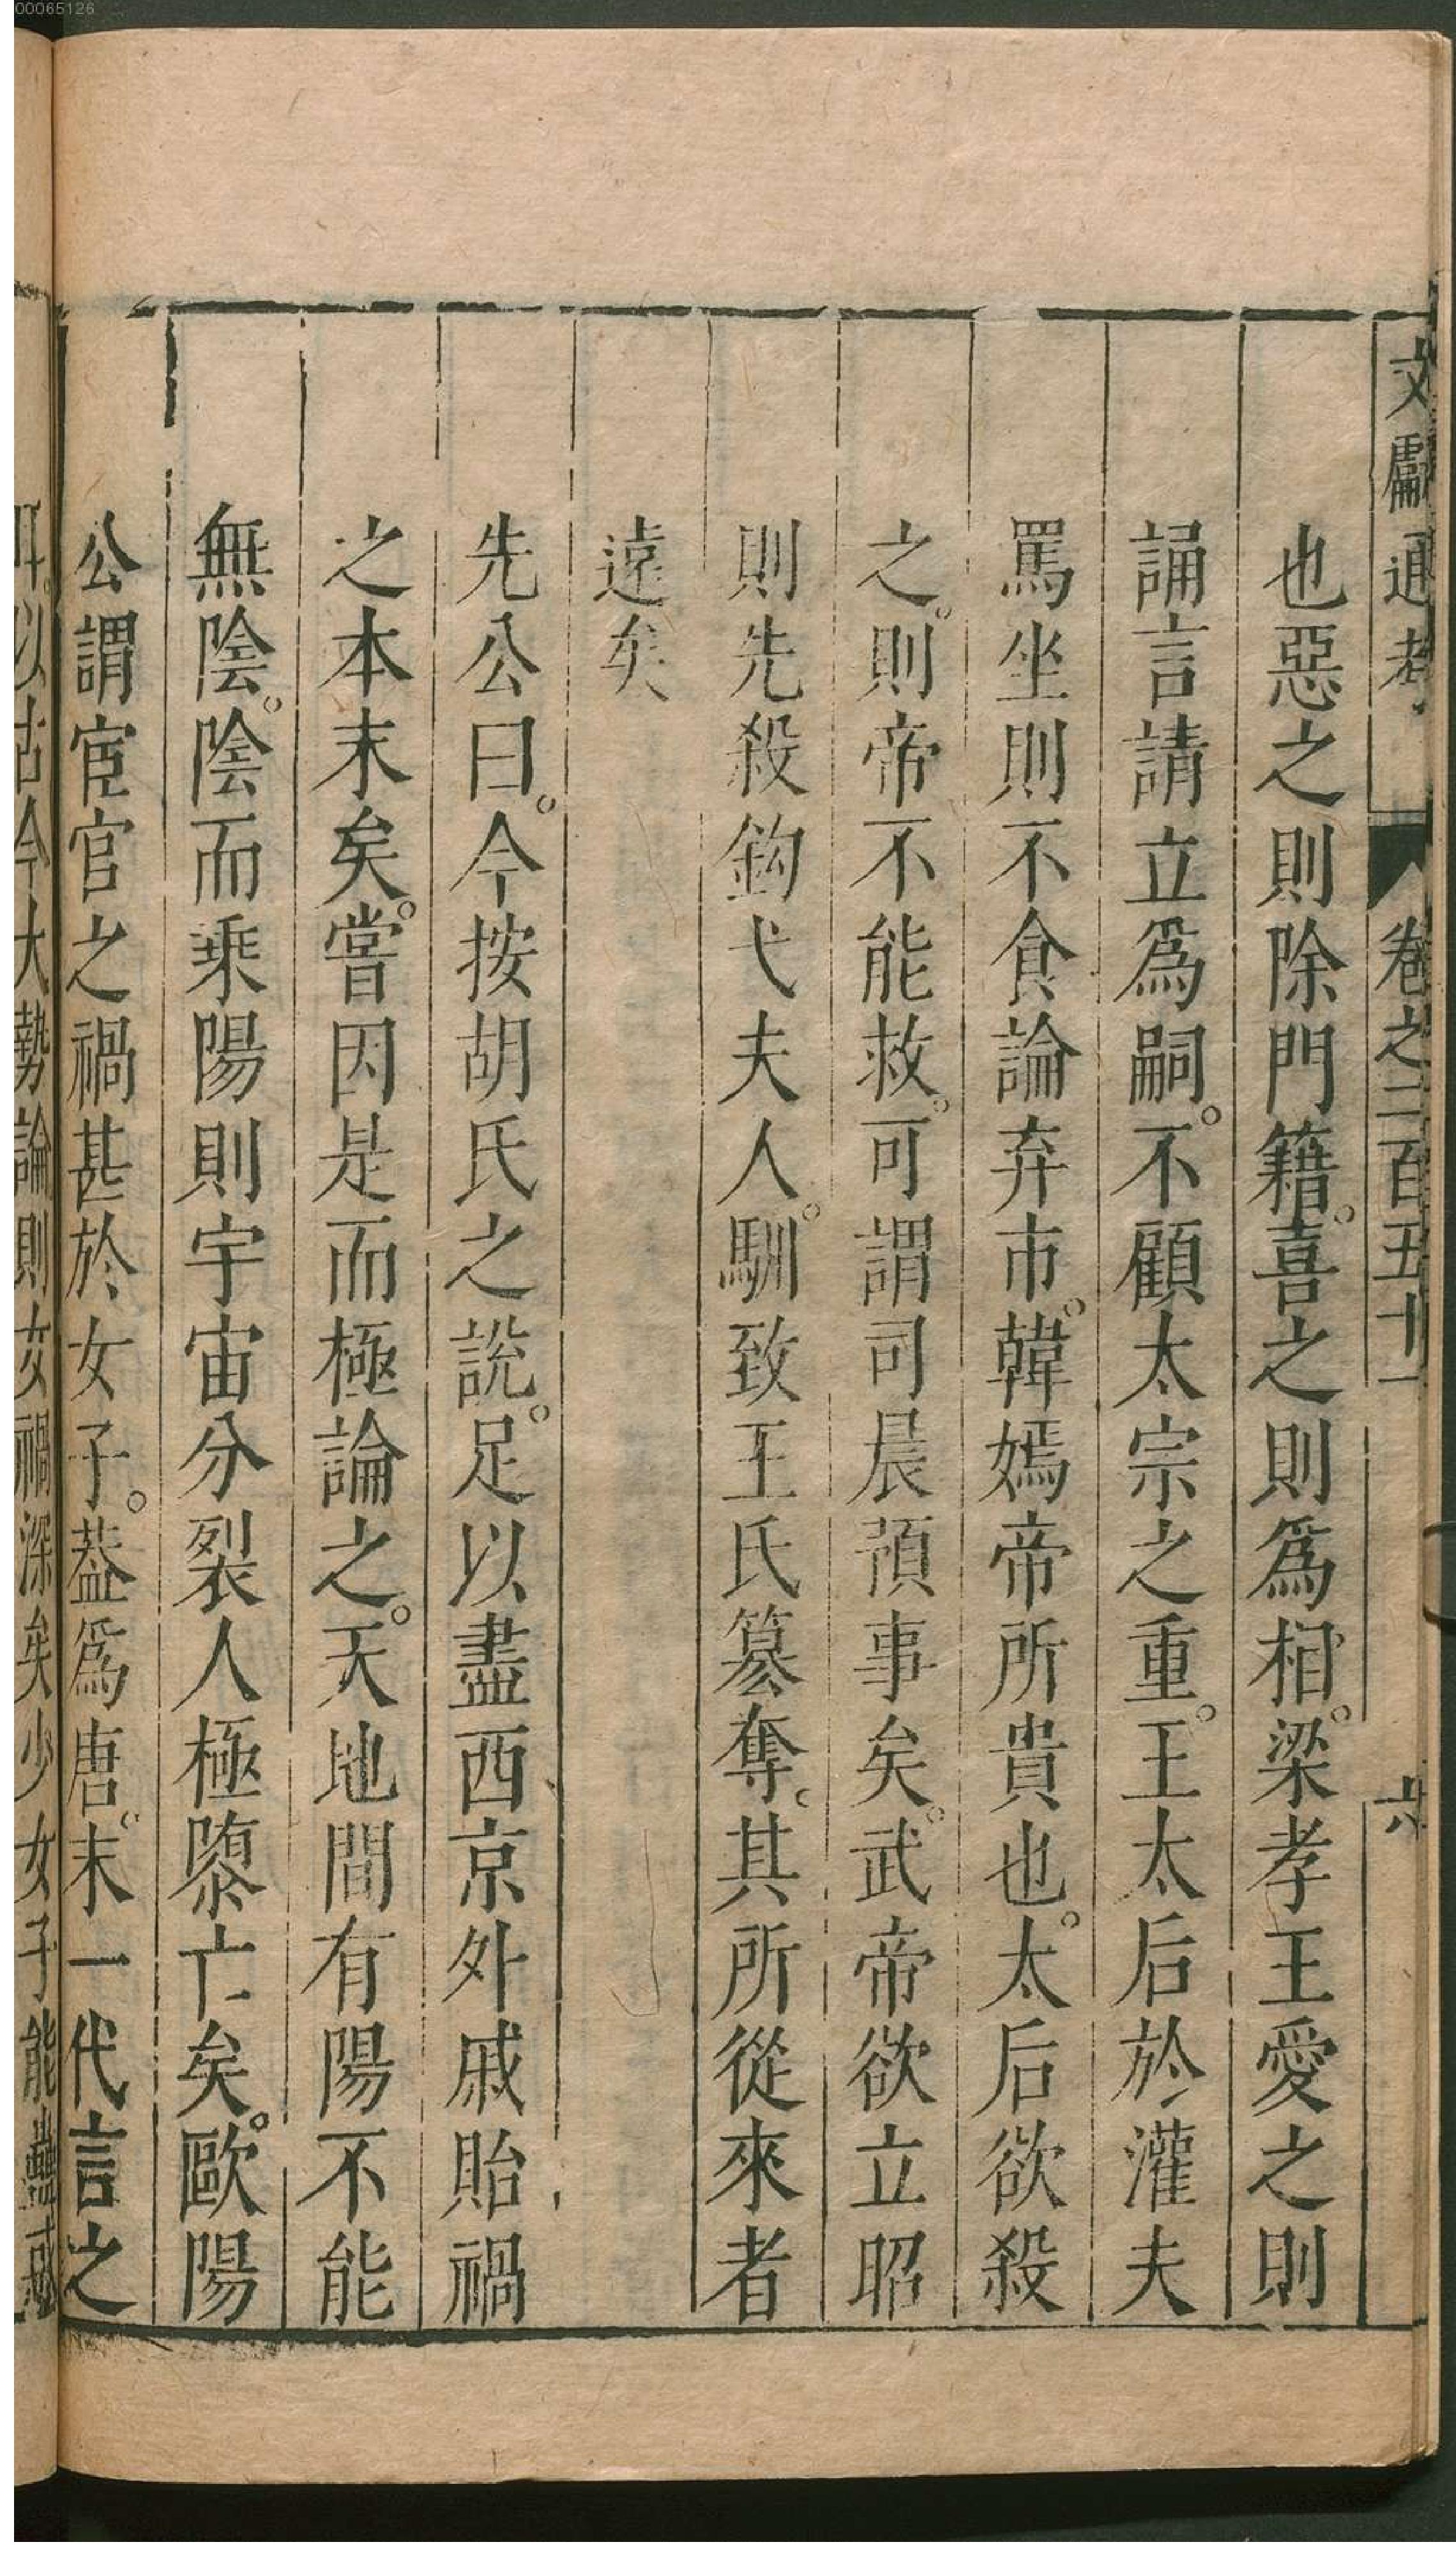 00065126
文獻通考 卷之二百五十一 六
也惡之則除門籍。喜之則爲相。梁孝王愛之則
誦言請立爲嗣。不顧太宗之重。王太后於灌夫
罵坐則不食論弃市。韓嫣帝所貴也。太后欲殺
之。則帝不能救。可謂司晨預事矣。武帝欲立昭
則先殺鈎弋夫人。馴致王氏簒奪。其所從來者
遠矣
先公曰。今按胡氏之說。足以盡西京外戚貽禍
之本末矣。嘗因是而極論之。天地間有陽不能
無陰。陰而乘陽則宇宙分裂人極隳亡矣。歐陽
公謂宦官之禍甚於女子。葢爲唐。末一代言之
耳。以古今大勢論則女禍深矣少女子能蠱惑